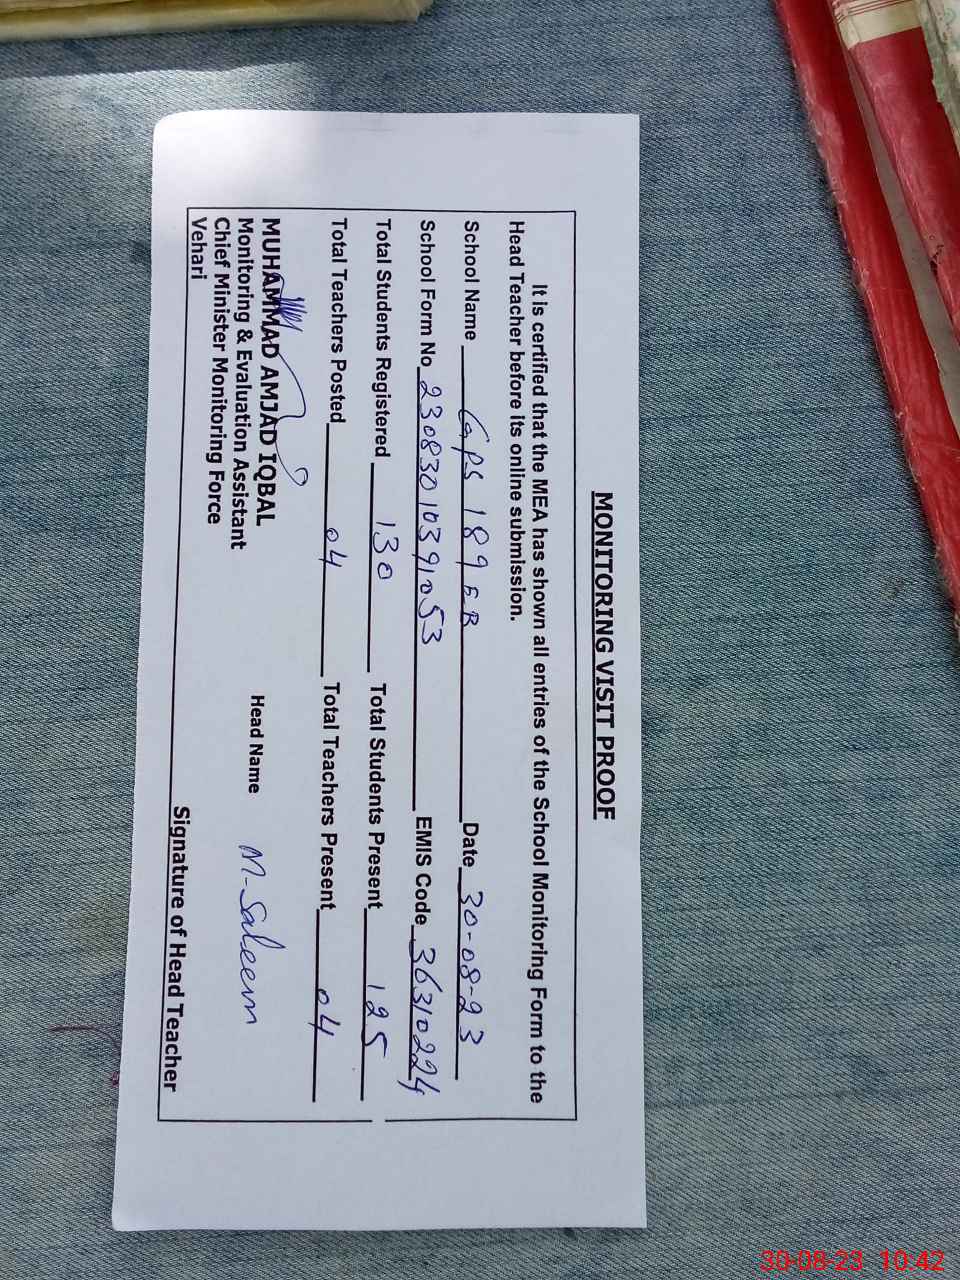 MONITORING VISIT PROOF
It is certified that the MEA has shown all entries of the School Monitoring Form to the
Head Teacher before its online submission.
School Name GPS 189 EB Date 30-08-23
School Form No 23083010391053 EMIS Code 36310224
Total Students Registered 130 Total Students Present 125
Total Teachers Posted 04 Total Teachers Present 04
MUHAMMAD AMJAD IQBAL
Monitoring & Evaluation Assistant Head Name M-Saleem
Chief Minister Monitoring Force
Vehari
Signature of Head Teacher
30-08-23 10:42